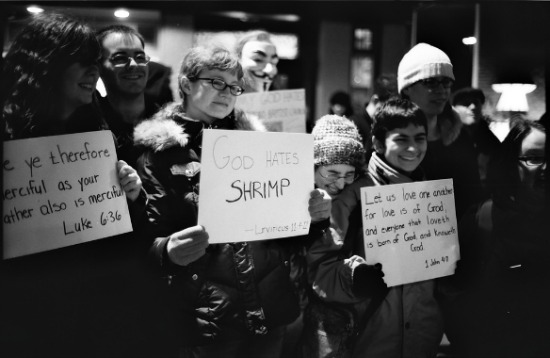 e ye therefore
erciful as your
ather also is merciful
Luke 6:36
GOD HATES
GOD HATES
SHRIMP
—Leviticus
Let us love one another
for love is of God,
and everyone that loveth
is born of God, and Knoweth
God.
1 John 4:7